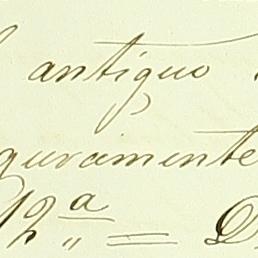 antiguo
guramente
12ª =